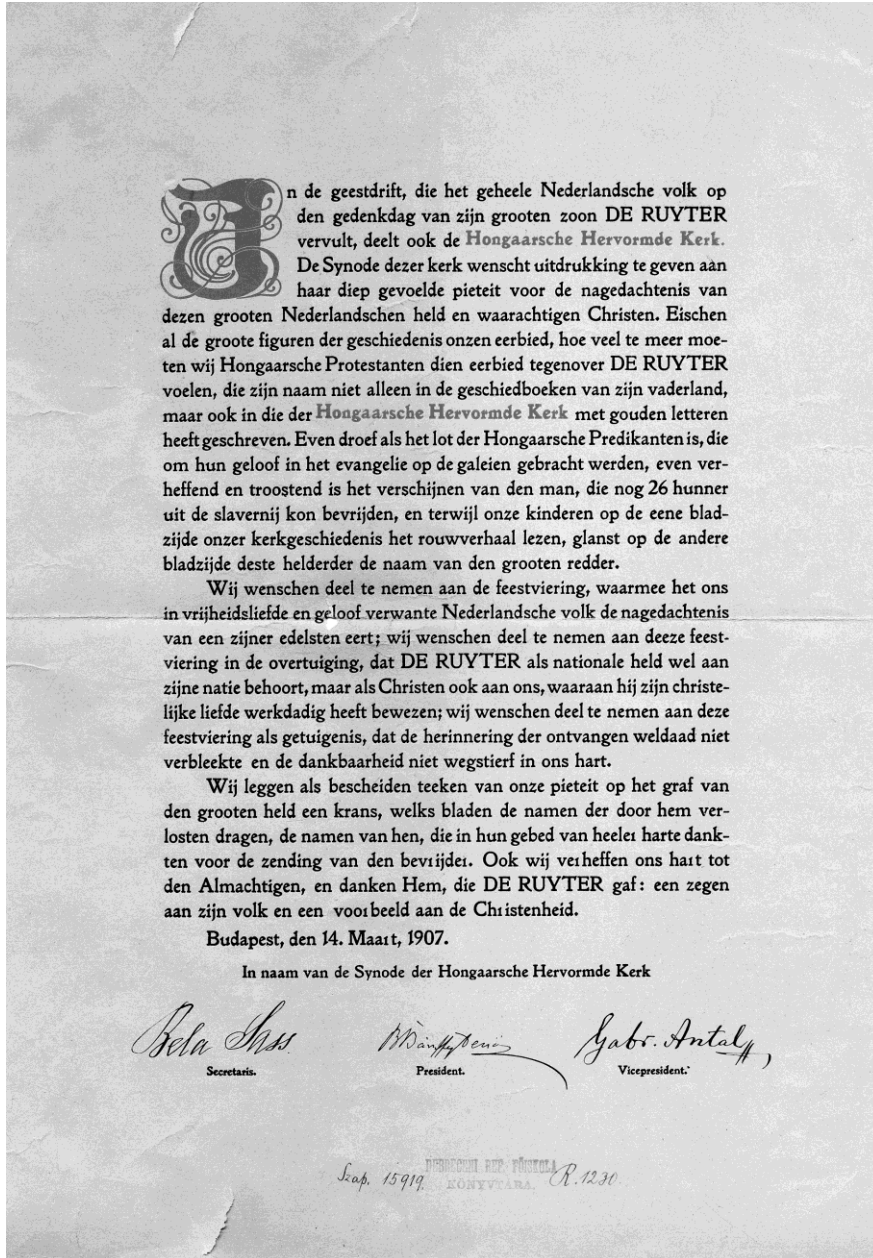 In de geestdrift, die het geheele Nederlandsche volk op
den gedenkdag van zijn grooten zoon DE RUYTER
vervult, deelt ook de Hongaarsche Hervormde Kerk.
De Synode dezer kerk wenscht uitdrukking te geven aan
haar diep gevoelde pieteit voor de nagedachtenis van
dezen grooten Nederlandschen held en waarachtigen Christen. Eischen
al de groote figuren der geschiedenis onzen eerbied, hoe veel te meer moe-
ten wij Hongaarsche Protestanten dien eerbied tegenover DE RUYTER
voelen, die zijn naam niet alleen in de geschiedboeken van zijn vaderland,
maar ook in die der Hongaarsche Hervormde Kerk met gouden letteren
heeft geschreven. Even droef als het lot der Hongaarsche Predikanten is, die
om hun geloof in het evangelie op de galeien gebracht werden, even ver-
heffend en troostend is het verschijnen van den man, die nog 26 hunner
uit de slavernij kon bevrijden, en terwijl onze kinderen op de eene blad-
zijde onzer kerkgeschiedenis het rouwverhaal lezen, glanst op de andere
bladzijde deste helderder de naam van den grooten redder.
Wij wenschen deel te nemen aan de feestviering, waarmee het ons
in vrijheidsliefde en geloof verwante Nederlandsche volk de nagedachtenis
van een zijner edelsten eert; wij wenschen deel te nemen aan deeze feest-
viering in de overtuiging, dat DE RUYTER als nationale held wel aan
zijne natie behoort, maar als Christen ook aan ons, waaraan hij zijn christe-
lijke liefde werkdadig heeft bewezen; wij wenschen deel te nemen aan deze
feestviering als getuigenis, dat de herinnering der ontvangen weldaad niet
verbleekte en de dankbaarheid niet wegstierf in ons hart.
Wij leggen als bescheiden teeken van onze pieteit op het graf van
den grooten held een krans, welks bladen de namen der door hem ver-
losten dragen, de namen van hen, die in hun gebed van heeler harte dank-
ten voor de zending van den bevrijder. Ook wij verheffen ons hart tot
den Almachtigen, en danken Hem, die DE RUYTER gaf: een zegen
aan zijn volk en een voorbeeld aan de Christenheid.
Budapest, den 14. Maart, 1907.
In naam van de Synode der Hongaarsche Hervormde Kerk
Bela Sass Gabr. Antal
Secretaris. President. Vicepresident.
DEBRECENI REF. FŐISKOLA
Szap. 15919. KÖNYVTÁRA. R. 1230.